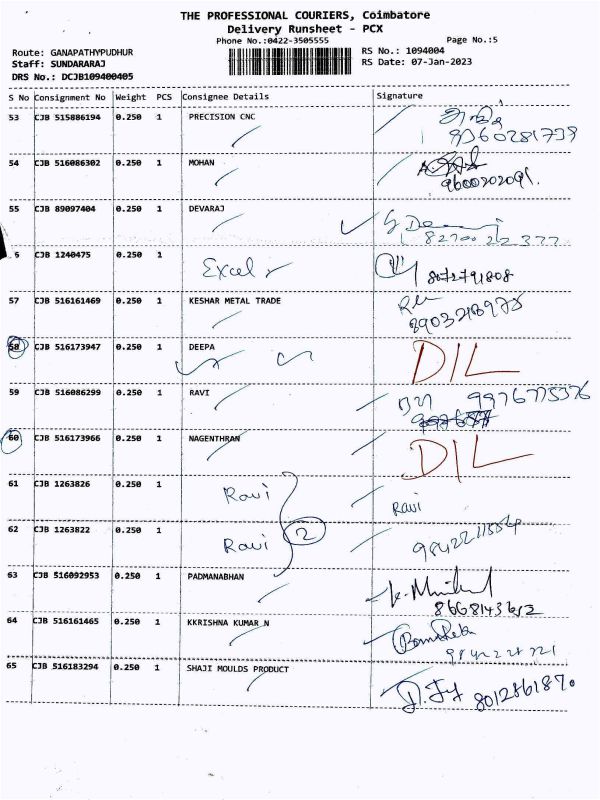 THE PROFESSIONAL COURIERS, Coimbatore
Delivery Runsheet - PCX
Phone No.:0422-3505555 Page No.:5
Route: GANAPATHYPUDHUR RS No.: 1094004
Staff: SUNDARARAJ RS Date: 07-Jan-2023
DRS No.: DCJB109400405
S No Consignment No Weight PCS Consignee Details Signature
53 CJB 515886194 0.250 1 PRECISION CNC
9360281739
54 CJB 516086302 0.250 1 MOHAN
9600202091.
55 CJB 89097404 0.250 1 DEVARAJ
8270022377
6 CJB 1240475 0.250 1 Excel
8072791808
57 CJB 516161469 0.250 1 KESHAR METAL TRADE
58 CJB 516173947 0.250 1 DEEPA DIL
59 CJB 516086299 0.250 1 RAVI 9976775576
60 CJB 516173966 0.250 1 NAGENTHRAN DIL
61 CJB 1263826 0.250 1 Ravi Ravi
62 CJB 1263822 0.250 1 Ravi 2
63 CJB 516092953 0.250 1 PADMANABHAN
64 CJB 516161465 0.250 1 KKRISHNA KUMAR N
65 CJB 516183294 0.250 1 SHAJI MOULDS PRODUCT